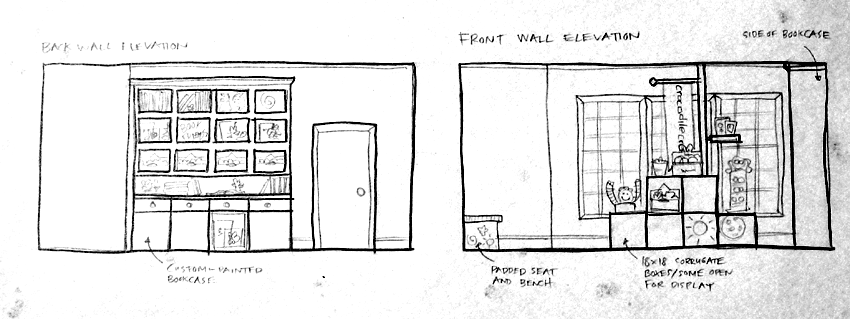 BACK WALL ELEVATION
CUSTOM-PAINTED
BOOKCASE
FRONT WALL ELEVATION
SIDE OF BOOKCASE
PADDED SEAT
AND BENCH
18x18 CORRUGATE
BOXES/SOME OPEN
FOR DISPLAY